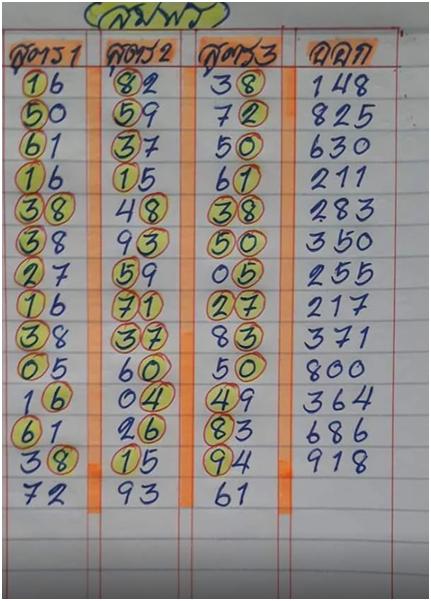 สมพร
สูตร1 สูตร2 สูตร3 ออก
16 82 38 148
50 59 72 825
61 37 50 630
16 15 61 211
38 48 38 283
38 93 50 350
27 59 05 255
16 71 27 217
38 37 83 371
05 60 50 800
16 04 49 364
61 26 83 686
38 15 94 918
72 93 61